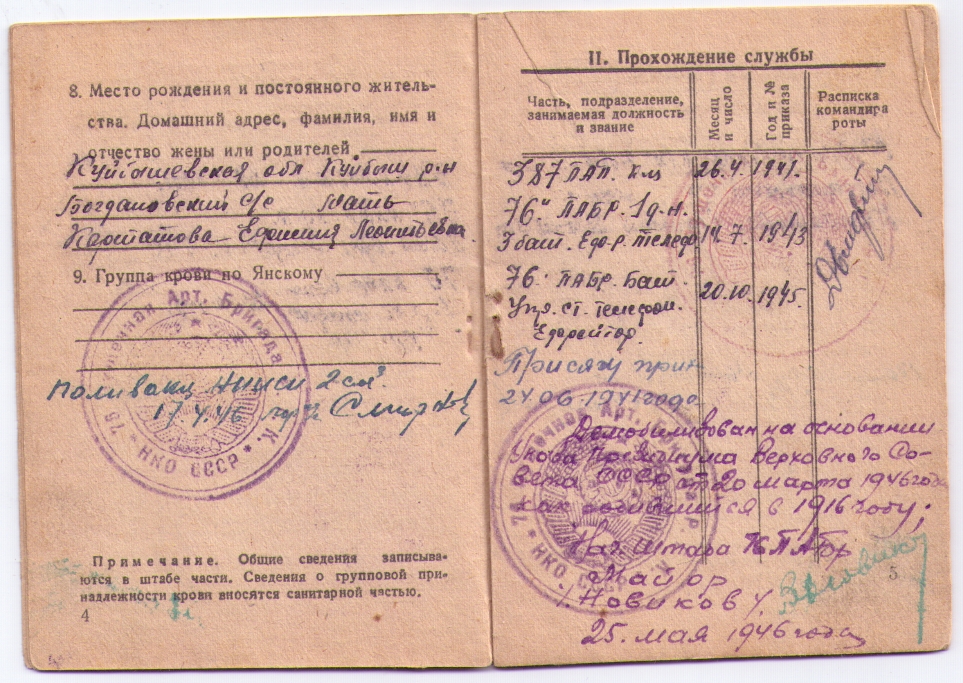 8. Место рождения и постоянного житель-
ства. Домашний адрес, фамилия, имя и
отчество жены или родителей
Куйбышевская обл Куйбыш р-н
Богдановский с/с Мать
Ефросиния Леонтьевна
9. Группа крови по Янскому
Поливакц НИИСИ 2 см³
17.4.46 Смирнов
76 Пушечная Арт. Бригада Р.Г.К. * НКО СССР *
Примечание. Общие сведения записыва-
ются в штабе части. Сведения о групповой при-
надлежности крови вносятся санитарной частью.
4
II. Прохождение службы
Часть, подразделение, занимаемая должность и звание
Месяц и число
Год и № приказа
Расписка командира роты
387 ПАП. 26.4 1941.
76" ПАБР. 1 д-н.
3 бат. Ефр. телеф. 14.7. 1943
76. ПАБР. Бат.
Упр. ст. телефон. 20.10. 1945.
Ефрейтор.
Присягу прин
24.06.1941 года
Демобилизован на основании
Указа Президиума Верховного Со-
вета СССР от 20 марта 1946 года
как родившийся в 1916 году;
Нач штаба ПАБр
Майор
/Новиков/.
25. мая 1946 года
76 Пушечная Арт. Бригада Р.Г.К. * НКО СССР *
5